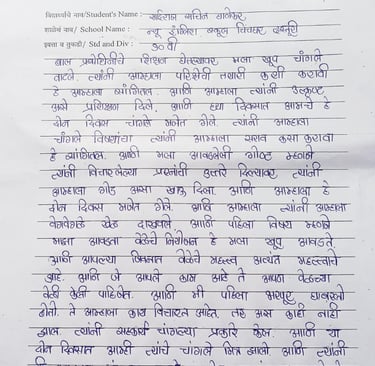 विद्यार्थ्याचे नाव/Student's Name : साईराज सचिन
शाळेचे नाव/ School Name : न्यू इंग्लिश स्कूल
इयत्ता व तुकडी/ Std and Div : १० वी
शिबिर घेतल्यावर मला खूप चांगले
वाटले. त्यांनी आम्हाला परिक्षेची तयारी कशी करावी
हे आम्हाला सांगितल. आणि आम्हाला त्यांनी उत्कृष्ट
असे प्रशिक्षण दिले. आणि ह्या दिवसात आमचे हे
दोन दिवस चांगले मजेत गेले. त्यांनी आम्हाला
चांगले विषयांचा त्यांनी आम्हाला सराव कसा करावा
हे सांगितल. आणि मला आवडलेली गोष्ट म्हणजे
त्यांनी विचारलेल्या प्रश्नांची उत्तरे दिल्यावर, त्यांनी
आम्हाला गोड असा खाऊ दिला. आणि आम्हाला हे
दोन दिवस मजेत गेले. आणि आम्हाला त्यांनी आम्हाला
वेगवेगळे खेळ दाखवले आणि पहिला विषय म्हणजे
माझा आवडता वेळेचे नियोजन हे मला खूप आवडते
आणि आपल्या जिवनात वेळेचे महत्त्व अत्यंत महत्त्वाचे
आहे. आणि जे आपले काम आहे ते आपण वेळच्या
वेळी केली पाहिजेत. आणि मी पहिला भरपूर घाबरलो
होतो. ते आम्हाला काय विचारत आहेत. तस अस काही नाही
झाल. त्यांनी सहकार्य चांगल्या प्रकारे केल. आणि या
दोन दिवसात आम्ही त्यांचे चांगले मित्र झालो. आणि त्यांनी